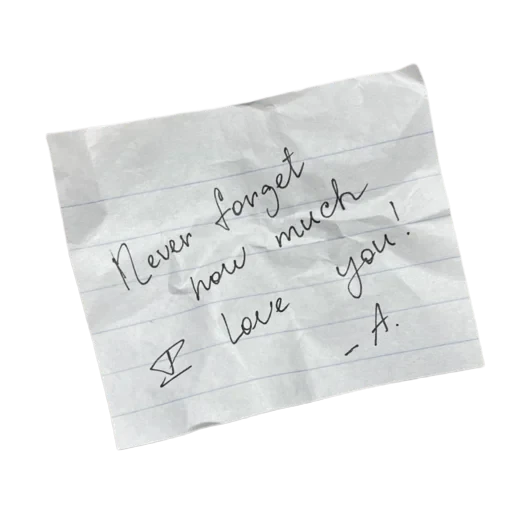 Never forget
how much
I Love you!
- A.